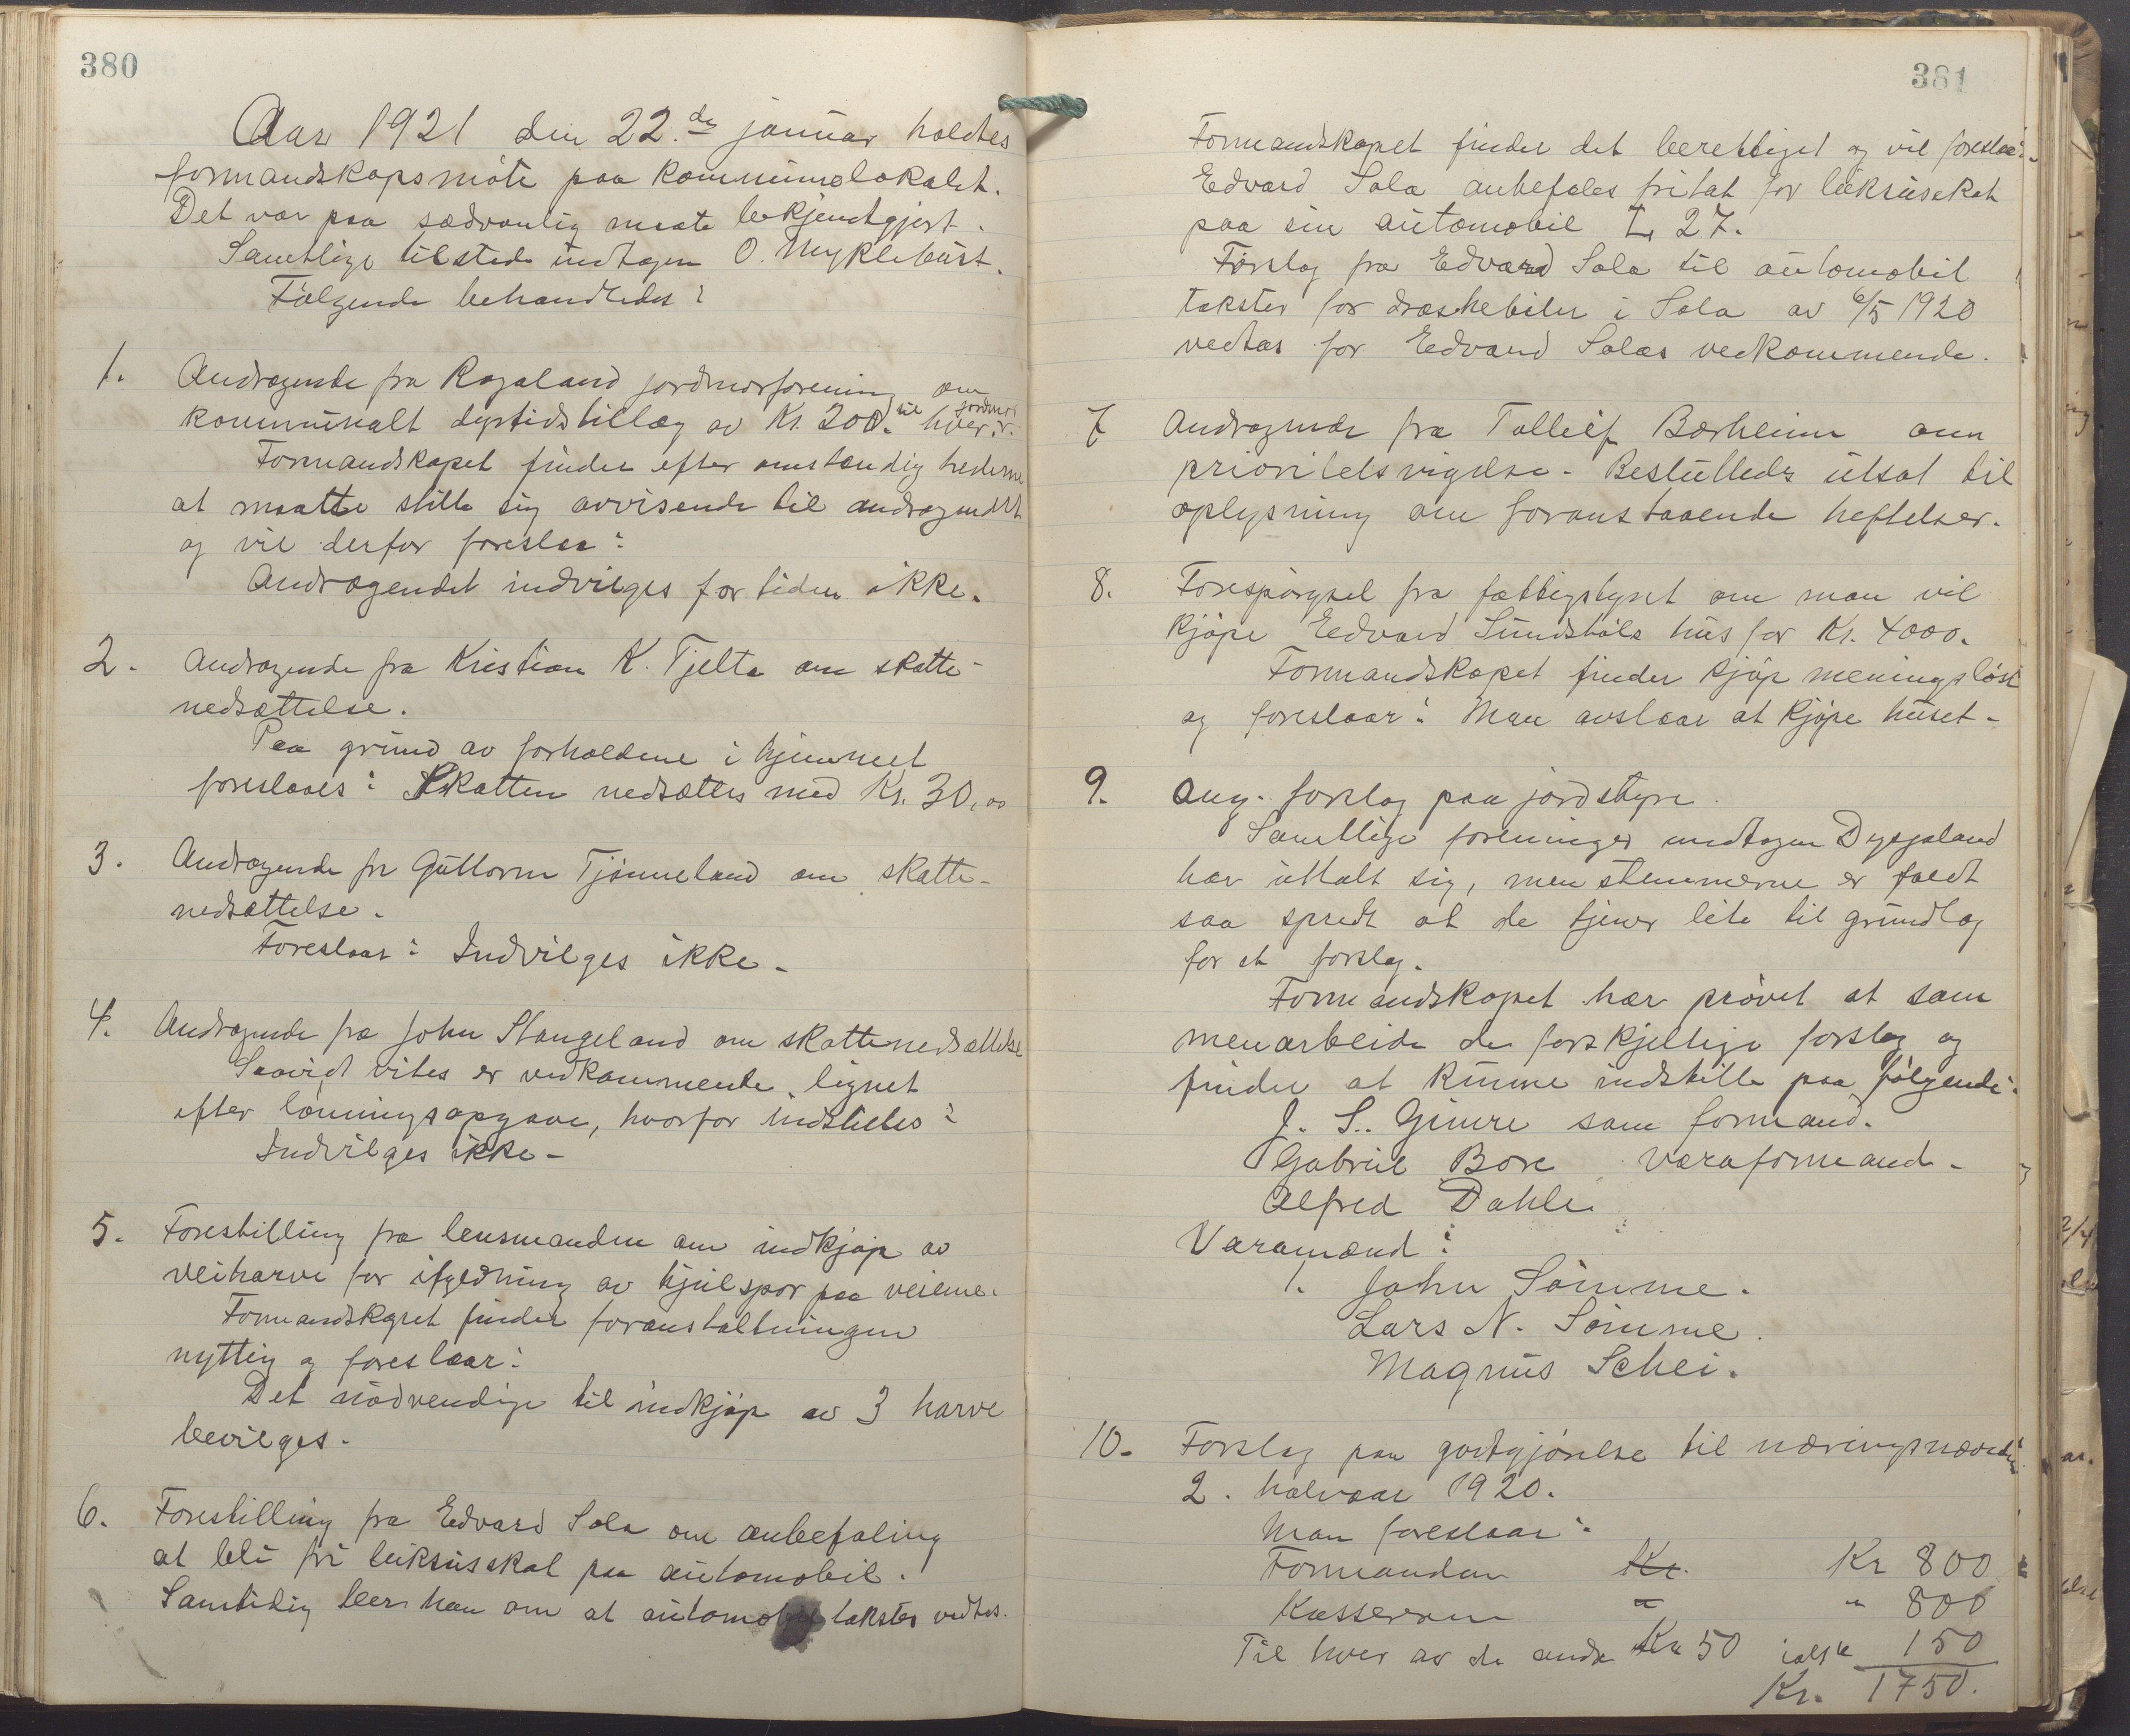 380
Aar 1921 den 22.de januar holdtes
formandskapsmöte paa kommunelokalet.
Det var paa sædvanlig maate bekjendtgjort.
Samtlige tilstede undtagen O. Myklebust.
Følgende behandledes:
1. Andragende fra Rogaland jordmorforening om
kommunalt dyrtidstillæg av Kr. 200. til hver jordmor.
Formandskapet finder efter omstændighederne
at maatte stille sig avvisende til andragendet
og vil derfor foreslaa:
Andragendet indvilges for tiden ikke.
2. Andragende fra Kristian K. Tjelta om skatte-
nedsættelse.
Paa grund av forholdene i hjemmet
foreslaaes: Skatten nedsættes med Kr. 30,00
3. Andragende fr Guttorm Tjönneland om skatte-
nedsættelse.
Foreslaar: Indvilges ikke.
4. Andragende fra John Stangeland om skattenedsættelse
Saavidt vites er vedkommende lignet
efter lönningsopgave, hvorfor indstilles:
Indvilges ikke -
5. Forestilling fra lensmanden om indkjöp av
veiharve for ifyldning av hjulspor paa veiene.
Formandskapet finder foranstaltningen
nyttig og foreslaar:
Det nödvendige til indkjöp av 3 harve
bevilges.
6. Forestilling fra Edvard Sola om anbefaling
at bli fri luksusskat paa automobil.
Samtidig ber han om at automobil takster vedtas.
381
Formandskapet finder det berettiget og vil foreslaa:
Edvard Sola anbefales fritat for luksusskat
paa sin automobil L 27.
Forslag fra Edvard Sola til automobil
takster for droskebiler i Sola av 6/5 1920
vedtas for Edvard Solas vedkommende.
7 Andragende fra Tolleif Borheim om
prioritetsvigelse - Besluttedes utsat til
oplysning om foranstaaende heftelser.
8. Forespörgsel fra fattigstyret om man vil
kjöpe Edvard Sundstöls hus for Kr. 4000.
Formandskapet finder kjöp meningslöst
og foreslaar: Man avslaar at kjöpe huset -
9. Ang. forslag paa jordstyre.
Samtlige foreninger undtagen Dysjaland
har uttalt sig, men stemmerne er faldt
saa spredt at de tjener lite til grundlag
for et forslag.
Formandskapet har prövet at sam
menarbeide de forskjellige forslag og
finder at kunne indstille paa fölgende:
J. S. Gimre som formand.
Gabriel Bore varaformand -
Alfred Dahle.
Varamænd:
1. John Sömme.
Lars N. Sömme.
Magnus Schei.
10. Forslag paa godtgjörelse til næringsnævnden
2. halvaar 1920.
Man foreslaar:
Formanden Kr. Kr 800
Kassereren " " 800
Til hver av de andre Kr 50 ialt " 150
Kr. 1750.